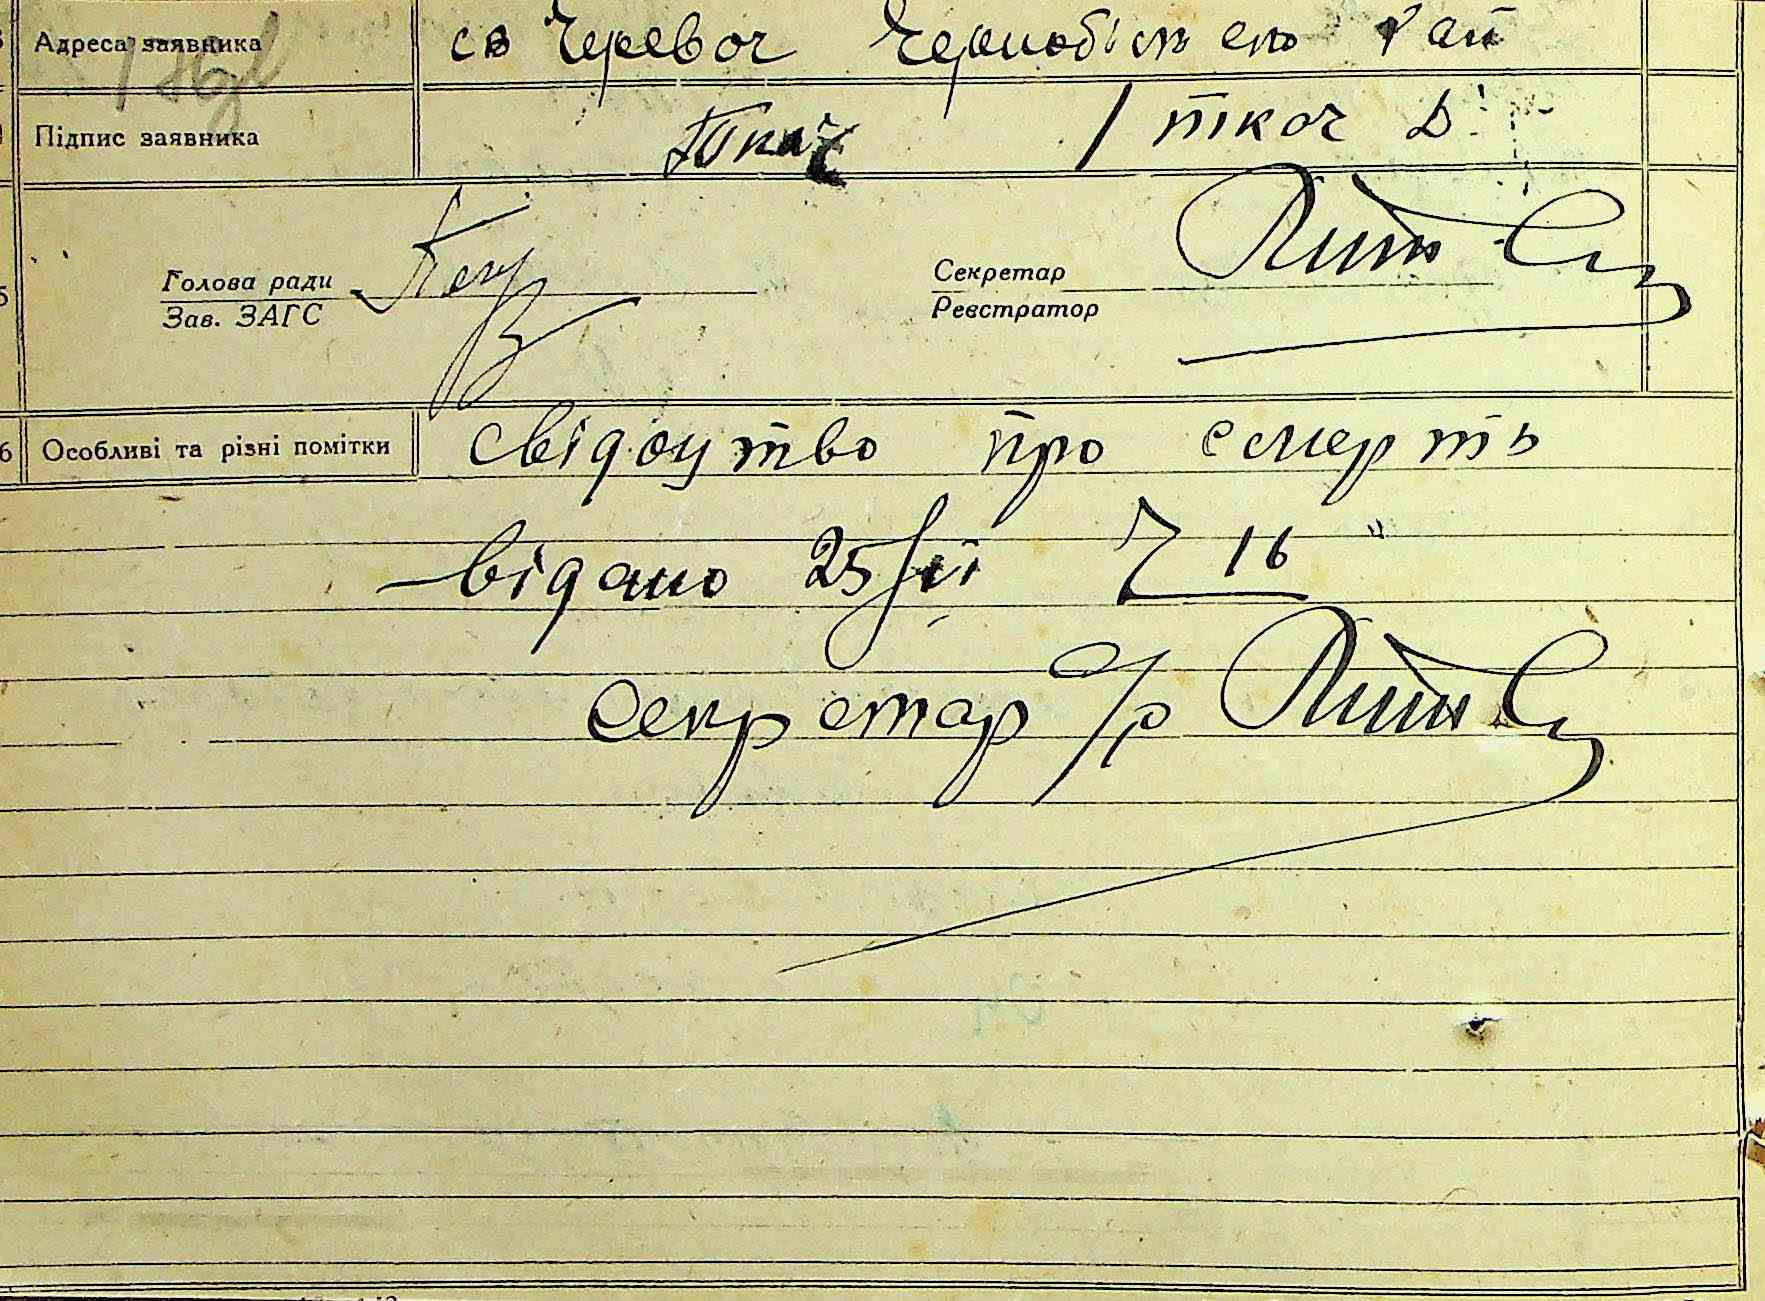 Адреса заявника св Черевоч Чорнобільско Рай
Підпис заявника Ткач / ткоч Д
Голова ради Секретар
Зав. ЗАГС Реєстратор
6 Особливі та різні помітки свідоцтво про смерть
відано 25/ІІ Ч 16
секретар с/р